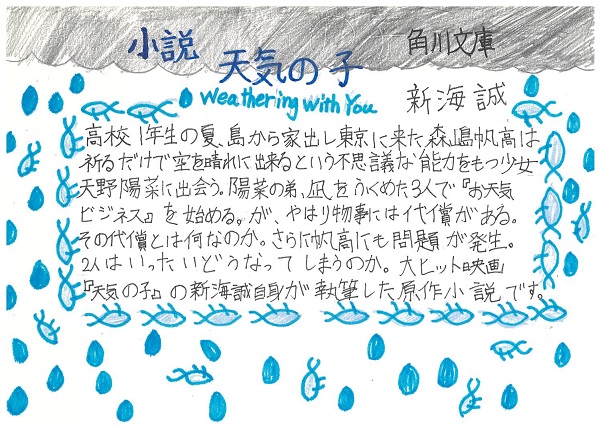 小説 天気の子 角川文庫
Weathering with You 新海誠
高校1年生の夏、島から家出し東京に来た森嶋帆高は
祈るだけで空を晴れに出来るという不思議な能力をもつ少女
天野陽菜に出会う。陽菜の弟、凪をふくめた3人で『お天気
ビジネス』を始める。が、やはり物事には代償がある。
その代償とは何なのか。さらに帆高にも問題が発生。
2人はいったいどうなってしまうのか。大ヒット映画
『天気の子』の新海誠自身が執筆した原作小説です。